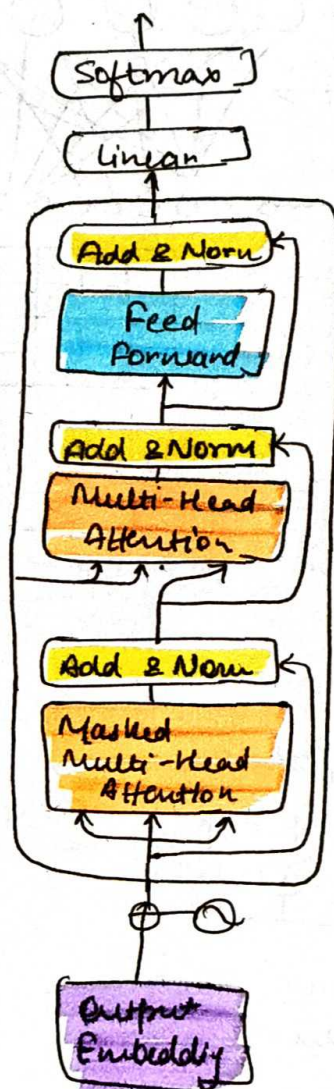 Softmax
Linear
Add & Norm
Feed
Forward
Add & Norm
Multi-Head
Attention
Add & Norm
Masked
Multi-Head
Attention
Output
Embeddig